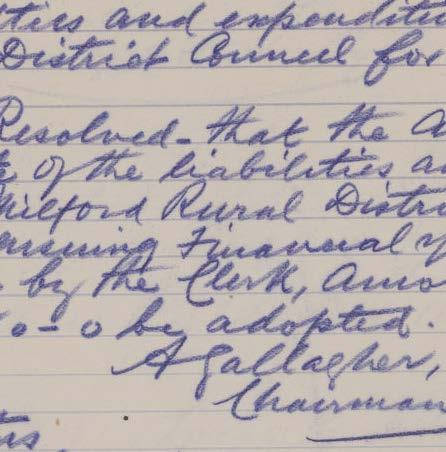 ties and expenditu
District Council for
Resolved - that the
of the liabilities a
Milford Rural Distri
ensuing Financial y
by the Clerk, amo
0 - 0 be adopted.
A Gallagher,
Chairman